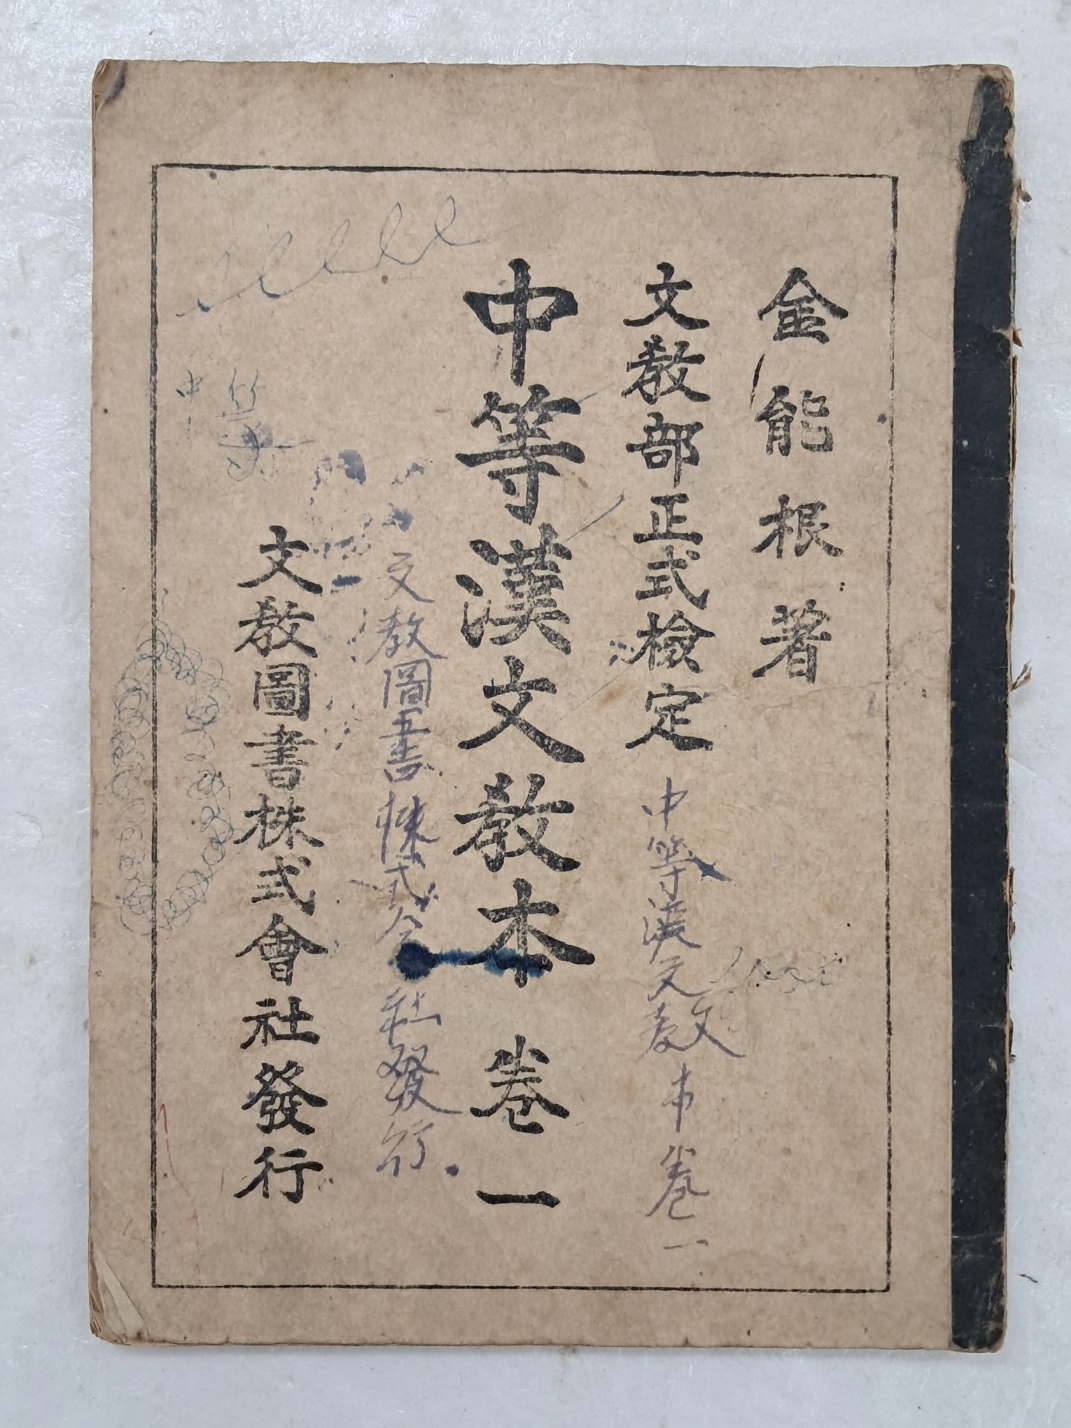 金能根著
文敎部正式檢定
中等漢文教本卷一
中等漢文敎本 卷一
文教圖書株式会社發行
文敎圖書株式會社發行
中等